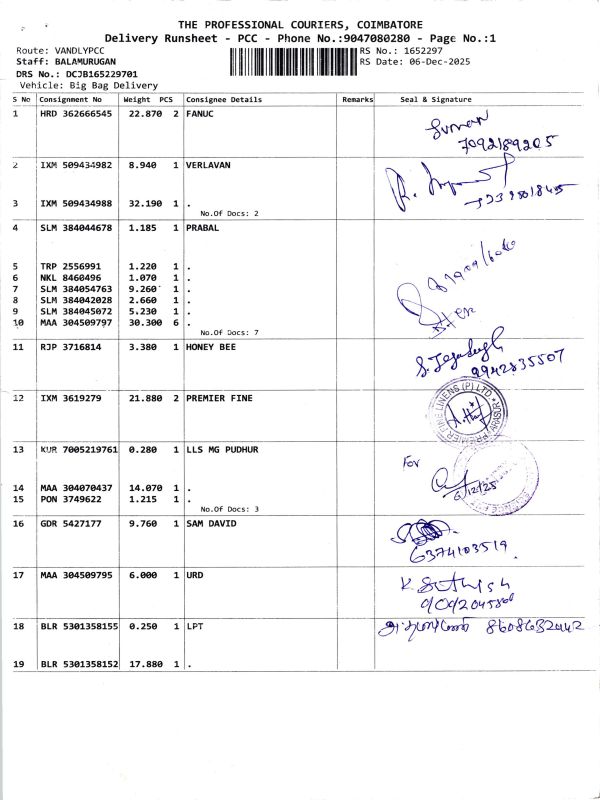 THE PROFESSIONAL COURIERS, COIMBATORE
Delivery Runsheet - PCC - Phone No.:9047080280 - Page No.:1
Route: VANDLYPCC
RS No.: 1652297
Staff: BALAMURUGAN
RS Date: 06-Dec-2025
DRS No.: DCJB165229701
Vehicle: Big Bag Delivery
S No Consignment No Weight PCS Consignee Details Remarks Seal & Signature
1 HRD 362666545 22.870 2 FANUC
Suman
7092189205
2 IXM 509434982 8.940 1 VERLAVAN
3 IXM 509434988 32.190 1 .
No.Of Docs: 2
4 SLM 384044678 1.185 1 PRABAL
5 TRP 2556991 1.220 1 .
6 NKL 8460496 1.070 1 .
7 SLM 384054763 9.260 1 .
8 SLM 384042028 2.660 1 .
9 SLM 384045072 5.230 1 .
10 MAA 304509797 30.300 6 .
No.Of Docs: 7
11 RJP 3716814 3.380 1 HONEY BEE
9942835507
12 IXM 3619279 21.880 2 PREMIER FINE
PREMIER FINE LINENS (P) LTD * ARASUR *
13 KUR 7005219761 0.280 1 LLS MG PUDHUR
For
14 MAA 304070437 14.070 1 .
6/12/25
15 PON 3749622 1.215 1 .
No.Of Docs: 3
16 GDR 5427177 9.760 1 SAM DAVID
6374103519
17 MAA 304509795 6.000 1 URD
K. Sathish
18 BLR 5301358155 0.250 1 LPT
8608632942
19 BLR 5301358152 17.880 1 .